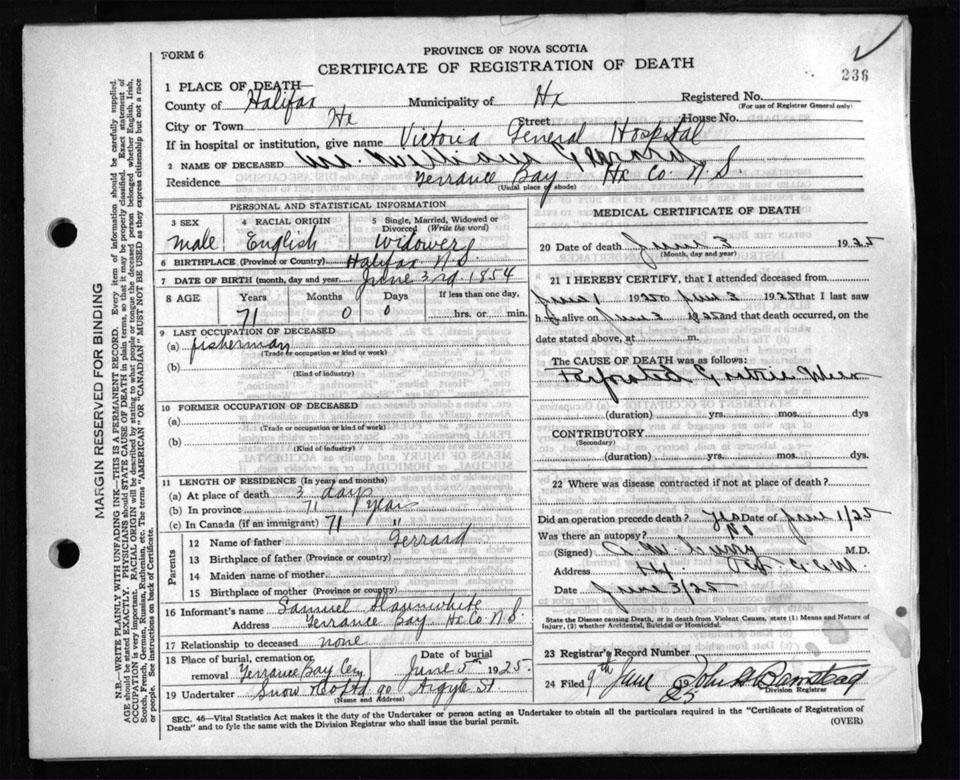 FORM 6
PROVINCE OF NOVA SCOTIA
CERTIFICATE OF REGISTRATION OF DEATH
236
1 PLACE OF DEATH—
County of Halifax Municipality of Hx Registered No.
(For use of Registrar General only)
City or Town Hx Street House No.
If in hospital or institution, give name Victoria General Hospital
2 NAME OF DECEASED William
Residence Terrance Bay Hx Co. N.S.
(Usual place of abode)
PERSONAL AND STATISTICAL INFORMATION
3 SEX 4 RACIAL ORIGIN 5 Single, Married, Widowed or Divorced (Write the word)
Male English Widower
6 BIRTHPLACE (Province or Country) Halifax N.S.
7 DATE OF BIRTH (month, day and year) June 3rd 1854
8 AGE Years Months Days If less than one day,
71 0 0 hrs. or min.
9 LAST OCCUPATION OF DECEASED
(a) fisherman
(Trade or occupation or kind or work)
(b)
(Kind of industry)
10 FORMER OCCUPATION OF DECEASED
(a)
(Trade or occupation or kind or work)
(b)
(Kind of industry)
11 LENGTH OF RESIDENCE (In years and months)
(a) At place of death 3 days
(b) In province 71 years
(c) In Canada (if an immigrant) 71 "
Parents
12 Name of father Gerrard
13 Birthplace of father (Province or country)
14 Maiden name of mother
15 Birthplace of mother (Province or country)
16 Informant's name Samuel Slaunwhite
Address Terrance Bay Hx Co N.S.
17 Relationship to deceased none
18 Place of burial, cremation or removal Date of burial
Terrance Bay Cem June 5th 1925.
19 Undertaker Snow & Co Ltd 90 Argyle St
(Name and Address)
MEDICAL CERTIFICATE OF DEATH
20 Date of death June 3 1925
(Month, day and year)
21 I HEREBY CERTIFY, that I attended deceased from
June 1 1925 to June 3 1925 that I last saw
h alive on June 3 1925 and that death occurred, on the
date stated above, at m.
The CAUSE OF DEATH was as follows:
Perforated Gastric Ulcer
(duration) yrs. mos. dys
CONTRIBUTORY
(Secondary)
(duration) yrs. mos. dys.
22 Where was disease contracted if not at place of death?
Did an operation precede death? Yes Date of June 1/25
Was there an autopsy? No
(Signed) M.D.
Address Hx.
Date June 3/25
State the Disease causing Death, or in death from Violent Causes, state (1) Means and Nature of Injury, (2) whether Accidental, Suicidal or Homicidal.
23 Registrar's Record Number
24 Filed 9th June 25 John
Division Registrar
SEC. 46—Vital Statistics Act makes it the duty of the Undertaker or person acting as Undertaker to obtain all the particulars required in the "Certificate of Registration of
Death" and to fyle the same with the Division Registrar who shall issue the burial permit.
(OVER)
MARGIN RESERVED FOR BINDING
N.B. WRITE PLAINLY WITH UNFADING INK—THIS IS A PERMANENT RECORD. Every item of information should be carefully supplied.
AGE should be stated EXACTLY. PHYSICIANS should STATE CAUSE OF DEATH in plain terms, so that it may be properly classified. Exact statement of
OCCUPATION is very important. RACIAL ORIGIN will be described by stating to what people or tongue the deceased person belonged whether English, Irish,
Scotch, French, German, Russian, Ruthenian, etc. The terms "AMERICAN" OR "CANADIAN" MUST NOT BE USED as they express citizenship but not a race
or people. See instructions on back of Certificate.